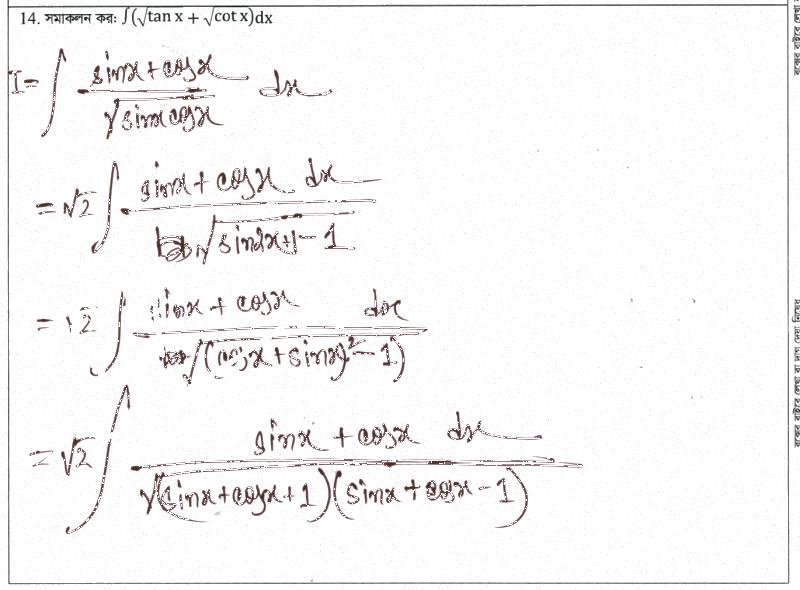 14. সমাকলন কর: ∫(√tan x + √cot x)dx
I = ∫ (sinx + cosx)/(√(sinx cosx)) dx
= √2 ∫ (sinx + cosx dx)/(√(sin2x+1 - 1))
= √2 ∫ (sinx + cosx dx)/(√((cosx + sinx)² - 1))
= √2 ∫ (sinx + cosx dx)/(√((sinx + cosx + 1)(sinx + cosx - 1)))